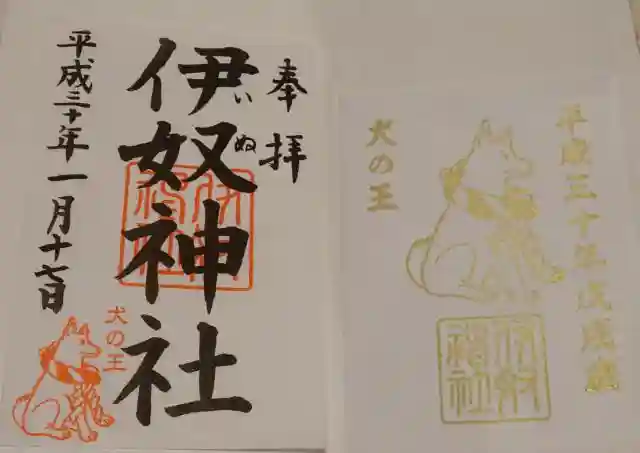 奉拝
伊奴神社
いぬ
平成三十年一月十七日
犬の王
伊奴神社
平成三十年戊戌歳
犬の王
伊奴神社